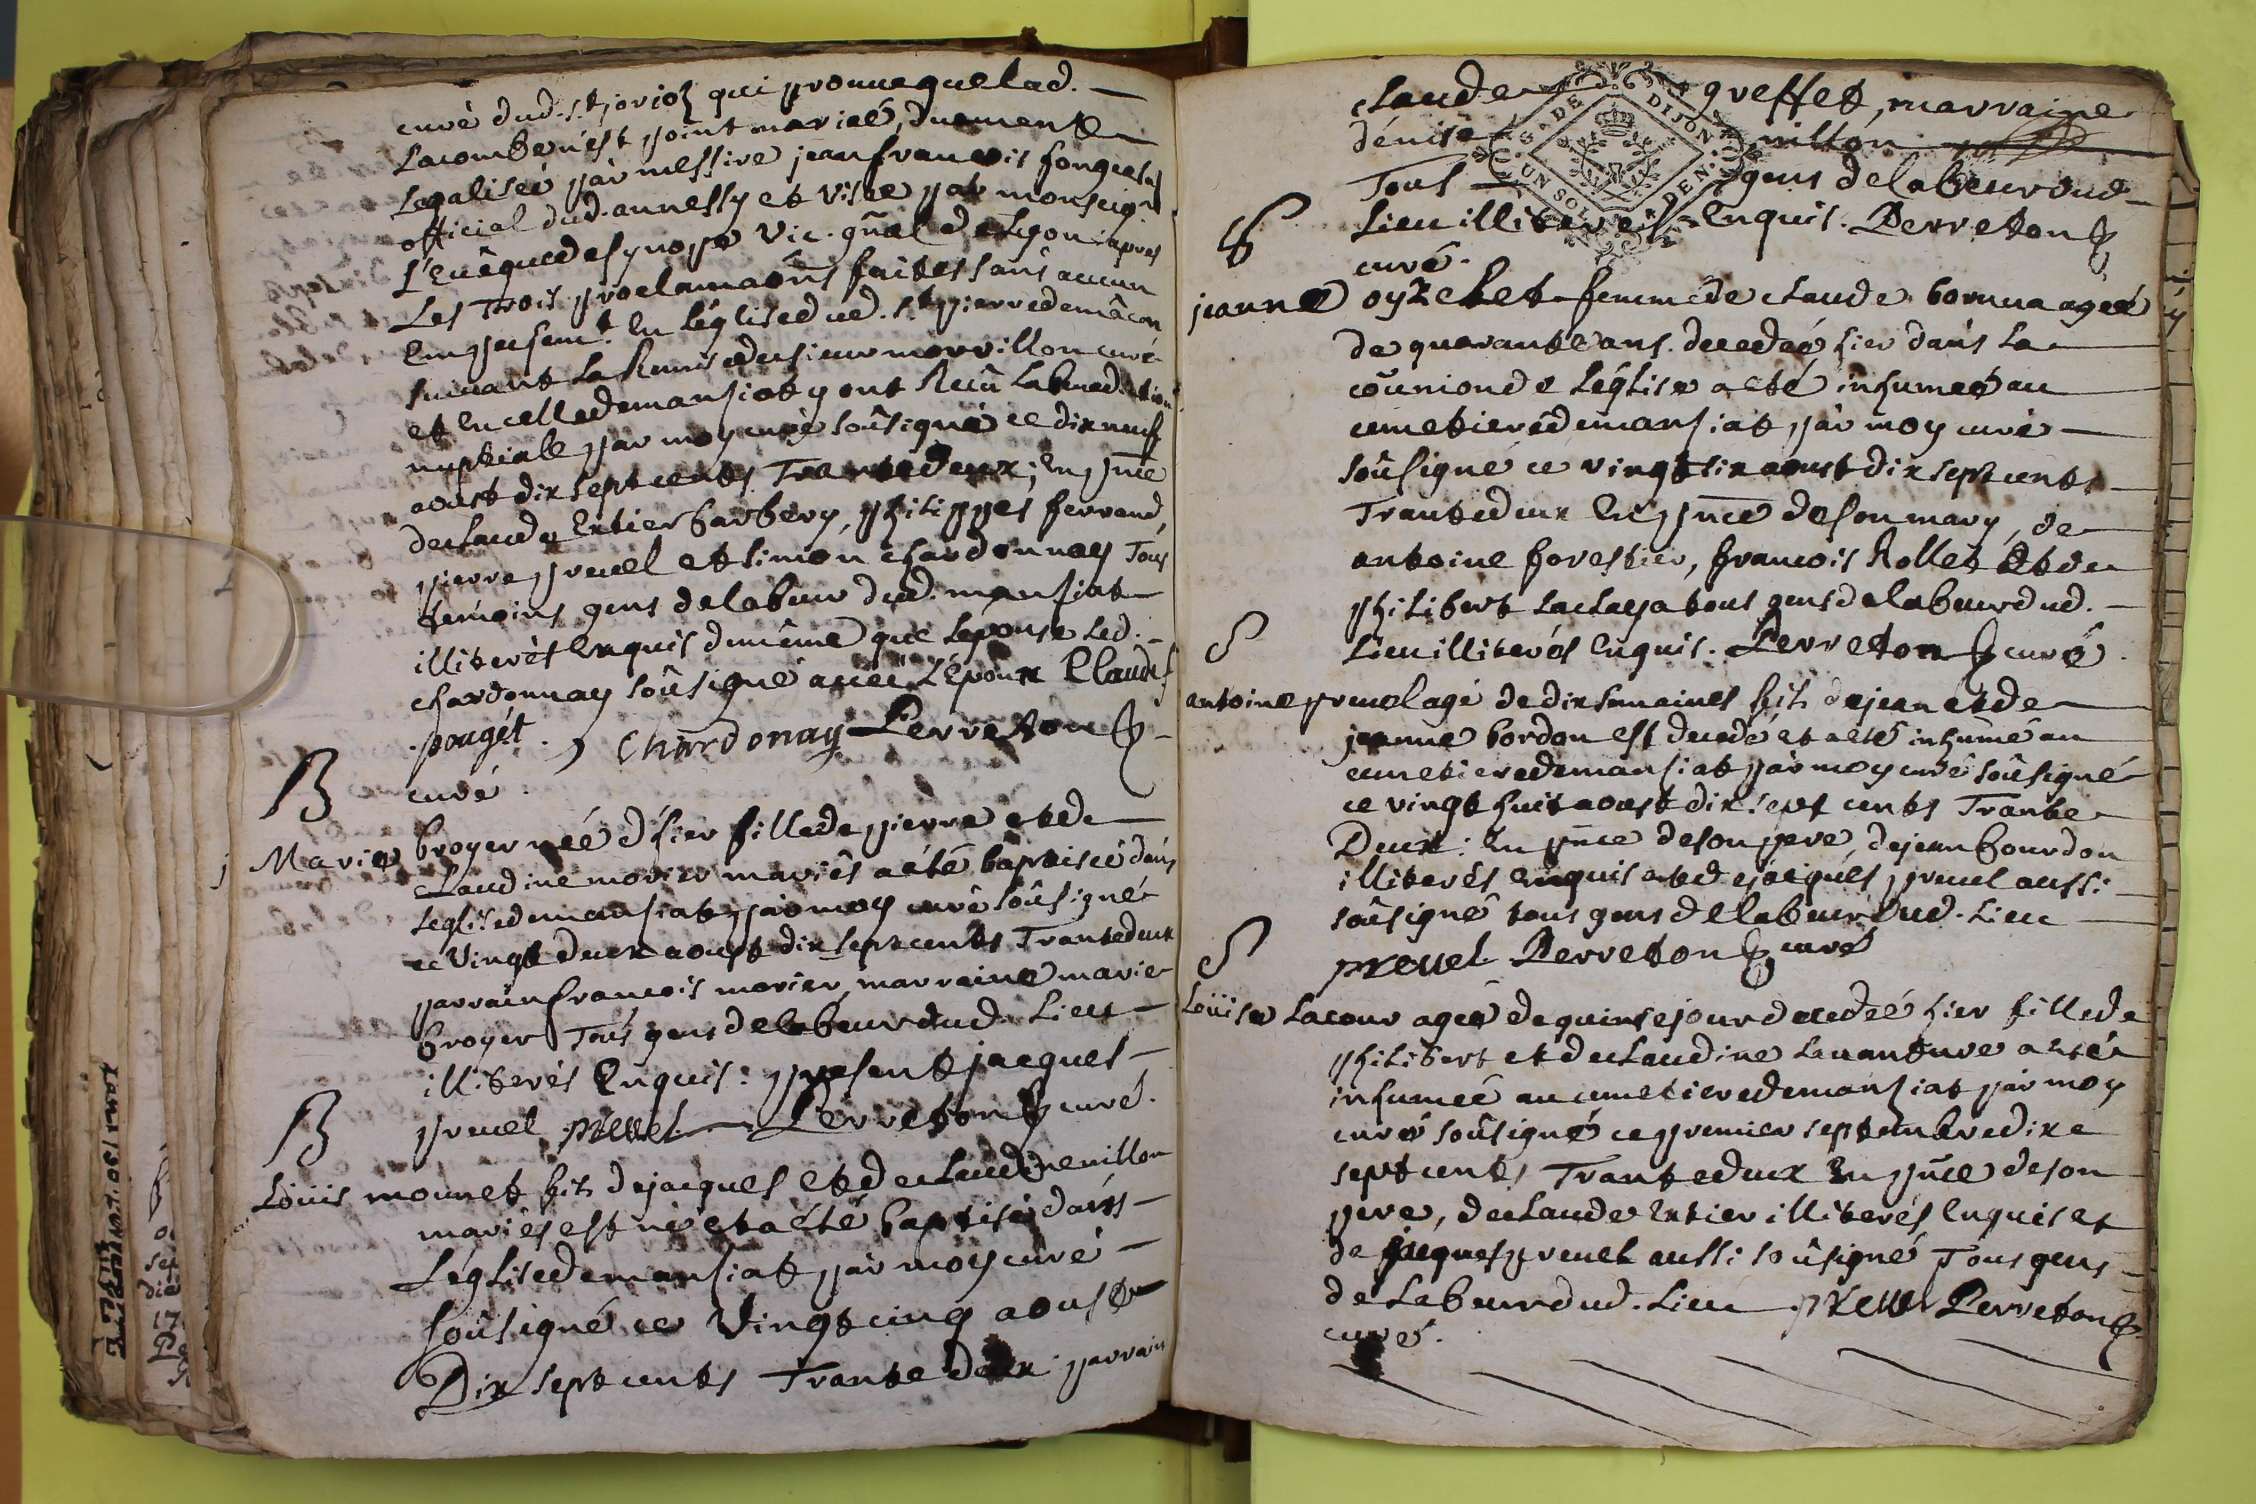 curé dud. st jorioz qui prouue que lad.
Lacombe n'est point mariée, duement
Legalisée par messire jean francois
official dud. annessy et visée par monseigr
L'Euêque de synope vic. gñal de Lyon; apres
Les Trois proclamaõns faites sans aucun
Empeschemt. En L'église dud. st pierre de mâcon
suiuant La Remise du sieur morvillon curé
et En celle de mansiat y ont Reçû La benediction
nuptiale par moy curé soûsigné ce dix neuf
aoust dix sept cents Trante Deux; En pñce
de claude Extier barbery, philippes ferrand,
pierre preuel et simon chardonnay Tous
temoins gens de labeur dud. mansiat
illiterés Enquis du même que L'epouse Led.
chardonnay soûsigné auec L'Epoux Claude
pougét. Chardonay Perreton
curé
B
Marie broyer née d'hier fille de pierre et de
claudine morier mariés a été baptisée dans
L'eglise de mansiat par moy curé soûsigné
ce Vingt Deux aoust dix sept cents Trante deux
parrain francois morier, marraine marie
broyer Tous gens de labeur dud. Lieu
illiterés Enquis: present jacques
preuel preuel Perreton curé.
B
Loüis monnet fils de jacques et de claud
mariés est né et a été baptisé dans
L'église de mansiat par moy curé
soûsigné ce Vingt cinq aoust
Dix sept cents Trante deux: parrain
claude greffet, marraine
dénise
Tous gens de labeur dud.
Lieu illiterés Enquis. Perreton
curé.
S
jeanne oyzelet femme de claude bornua agée
de quarante ans. decedée hier dans La
coũnion de L'église a eté inhumeé au
cimetiere de mansiat par moy curé
soûsigné ce vingt six aoust dix sept cents
Trante deux En pñce de son mary, de
antoine forestier, francois Rollet Et de
philibert tous gens de labeur dud.
Lieu illiterés Enquis. Perreton curé.
S
antoine preuel agé de dix semaines fils de jean et de
jeanne bordon est decedé et a eté inhumé au
cimetiere de mansiat par moy curé soûsigné
ce vingt huit aoust dix sept cents Trante
Deux: En pñce de son pere, de jean bourdon
illiterés enquis et de jacques preuel aussi
soûsigné tous gens de labeur dud. Lieu
preuel Perreton curé
S
Loüise Lacour ageé de quinse jour decedeé hier fille de
philibert et de claudine Leuanture a eté
inhumeé au cimetiere de mansiat par moy
curé soûsigné ce premier septembre dix
sept cents Trante deux En pñce de son
pere, de claude Extier illiterés Enquis et
de jacques preuel aussi soûsigné Tous gens
de Labeur dud. Lieu preuel Perreton
curé.
G. DE DIJON
UN SOL DEN.